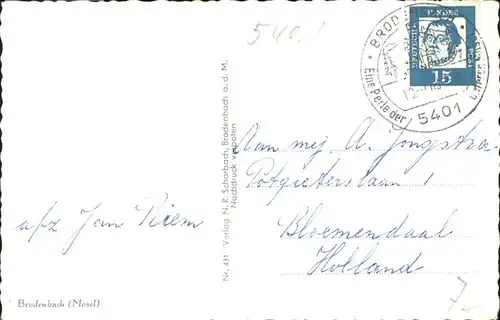 540.1
DEUTSCHE
POST
15
Eine Perle der
5401
Nr. 431 Verlag N. R. Scharbach, Brodenbach a. d. M.
Nachdruck verboten
Aan mej. A. Jongstra
Potgieterslaan 1
Bloemendaal
Holland
afz Jan Riem
Brodenbach (Mosel)